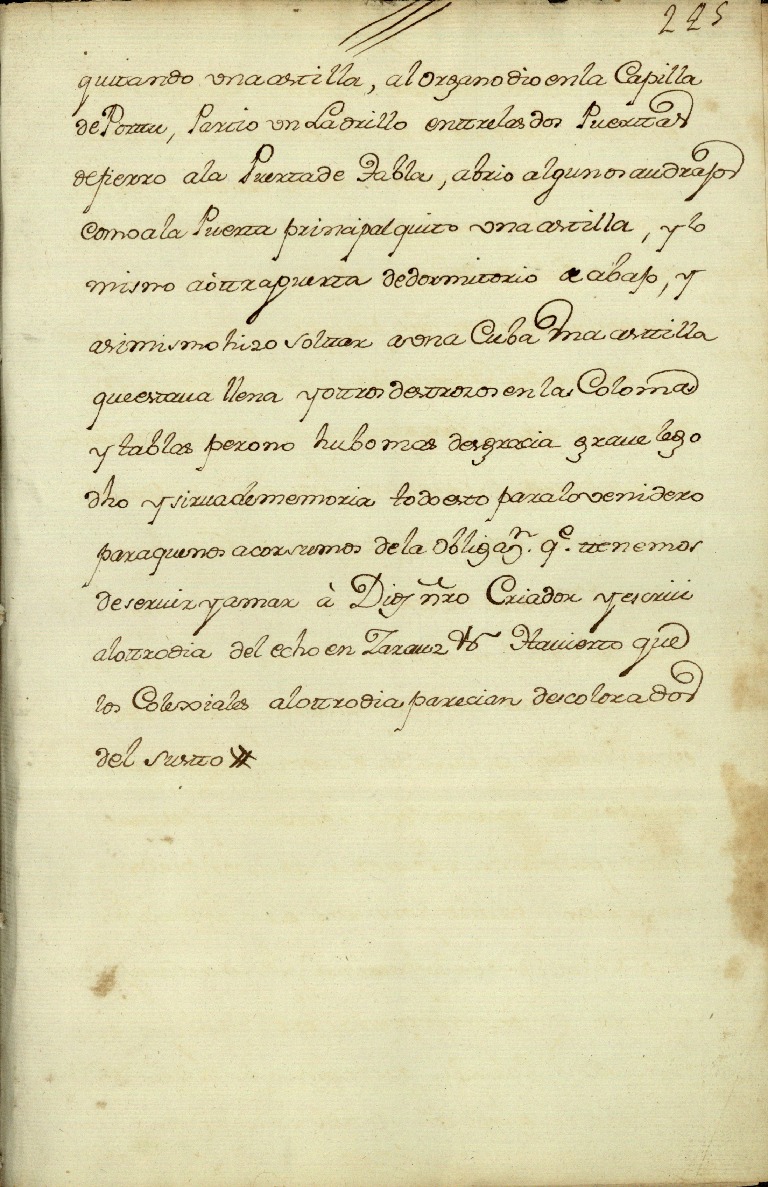 225
quitando una astilla, al Organo dio en la Capilla
de Portu, Partio un Ladrillo entre las dos Puertas
de fierro a la Puerta de Tabla, abrio algunos
como a la Puerta principal quito una astilla, y lo
mismo a otra puerta de dormitorio abajo, y
asimismo hizo soltar a una Cuba una astilla
que estava llena y otros destrozos en las Colomas
y tablas pero no hubo mas desgracia grave lego
dho y sirva de memoria todo esto para lo venidero
para que nos acorsumos de la obligaz.n q.e tenemos
de servir y amar à Dios ñro Criador y escrivi
al otro dia del echo en Zarauz Advierto que
los Colexiales al otro dia parecian descolorados
del susto